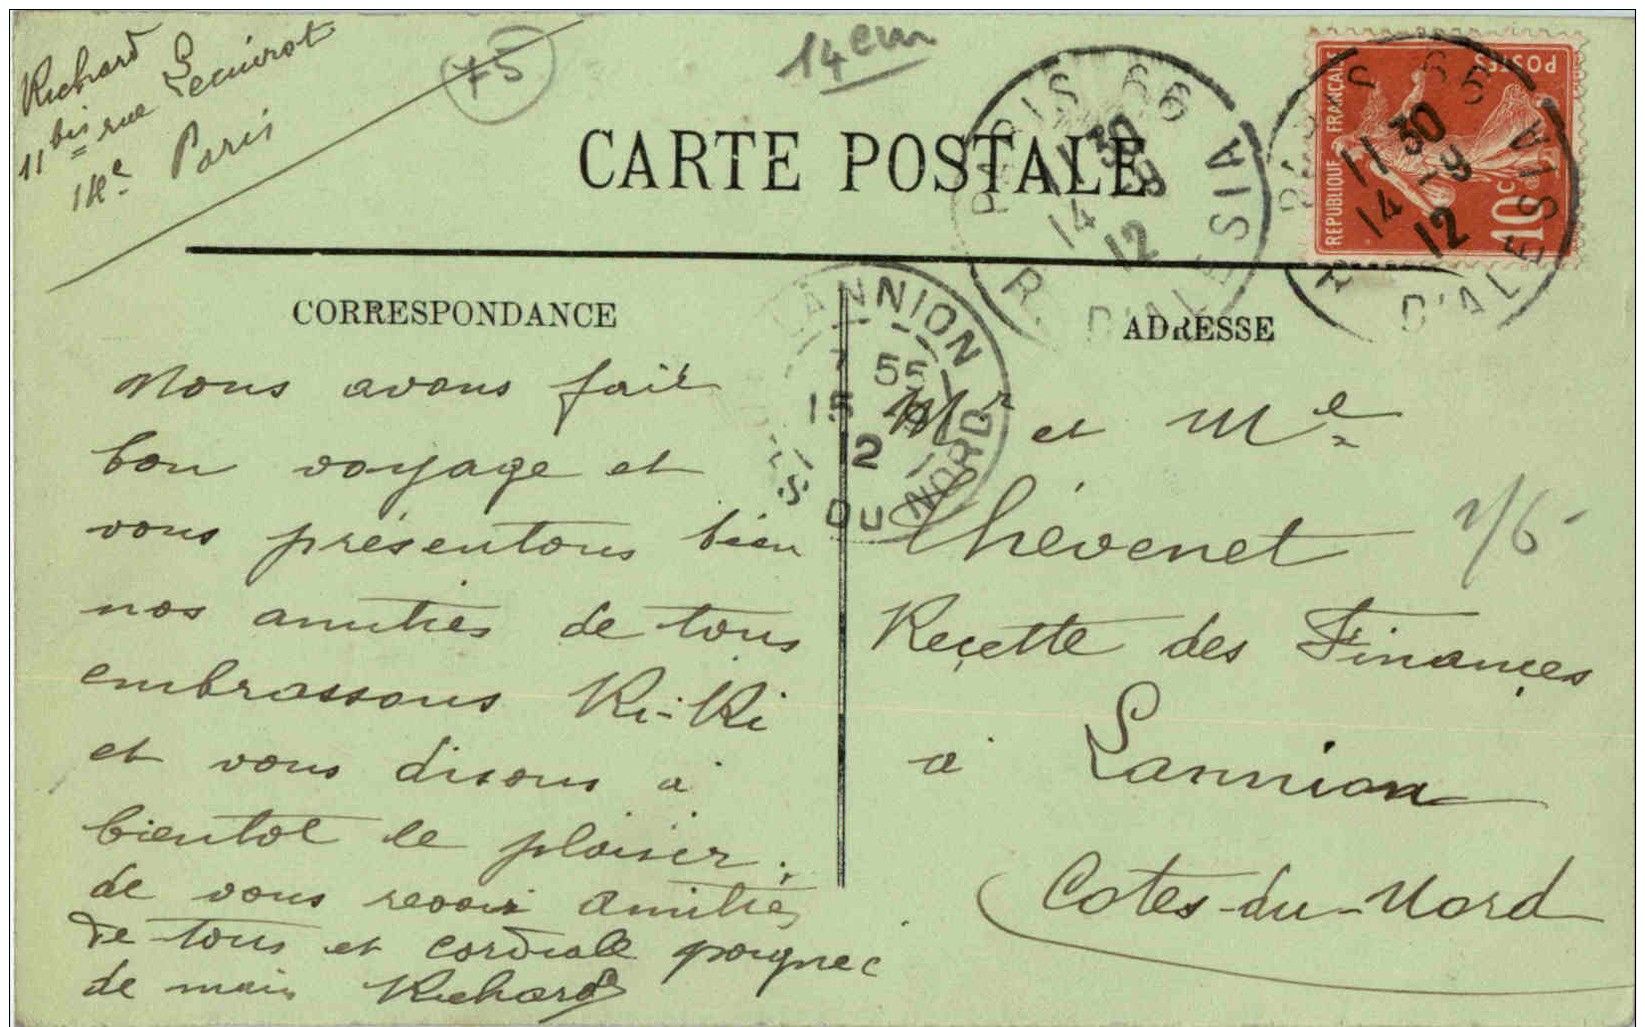 Richard
11 bis rue Lecuirot
14e Paris
75
14 em
CARTE POSTALE
PARIS 66
11 30
14 -9
12
R. D'ALESIA
PARIS 66
11 30
14 -9
12
R. D'ALESIA
REPUBLIQUE FRANÇAISE
POSTES
10c
LANNION
7 55
15 -9
12
COTES DU NORD
CORRESPONDANCE
Nous avons fait
bon voyage et
vous présentons bien
nos amitiés de tous
embrassons Ki-Ki
et vous disons à
bientot le plaisir
de vous revoir amitiés
de tous et cordiale poignée
de main Richard
ADRESSE
Mr et Me
Thévenet
Reçette des Finançes
à Lannion
Cotes-du-Nord